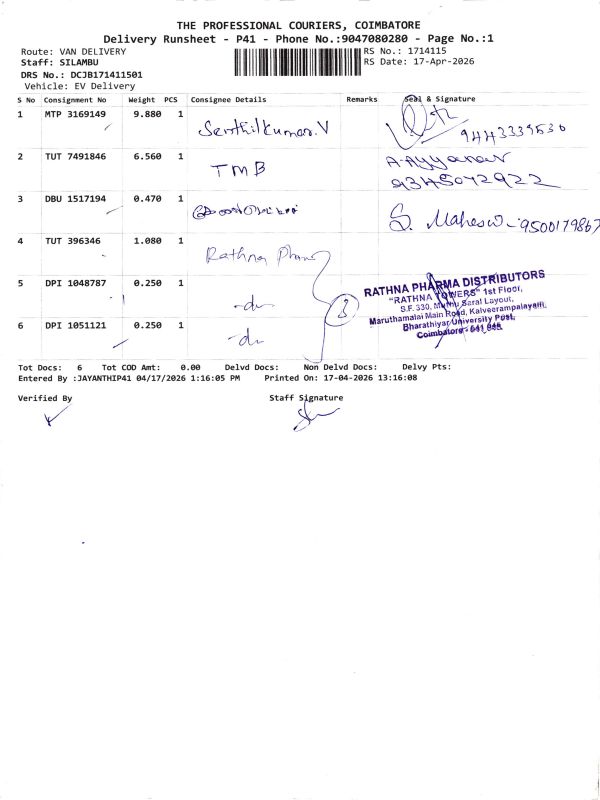 THE PROFESSIONAL COURIERS, COIMBATORE
Delivery Runsheet - P41 - Phone No.:9047080280 - Page No.:1
Route: VAN DELIVERY RS No.: 1714115
Staff: SILAMBU RS Date: 17-Apr-2026
DRS No.: DCJB171411501
Vehicle: EV Delivery
S No Consignment No Weight PCS Consignee Details Remarks Seal & Signature
1 MTP 3169149 9.880 1 Senthilkumar.V
2 TUT 7491846 6.560 1 TMB A.Ayyanar
9345072922
3 DBU 1517194 0.470 1 S. Maheswi
4 TUT 396346 1.080 1 Rathna Pharma
5 DPI 1048787 0.250 1 -do- 3
6 DPI 1051121 0.250 1 -do-
RATHNA PHARMA DISTRIBUTORS
"RATHNA TOWERS" 1st Floor,
S.F. 330, Muthu Saral Layout,
Maruthamalai Main Road, Kalveerampalayam,
Bharathiyar University Post,
Coimbatore - 641 046.
Tot Docs: 6 Tot COD Amt: 0.00 Delvd Docs: Non Delvd Docs: Delvy Pts:
Entered By :JAYANTHIP41 04/17/2026 1:16:05 PM Printed On: 17-04-2026 13:16:08
Verified By Staff Signature